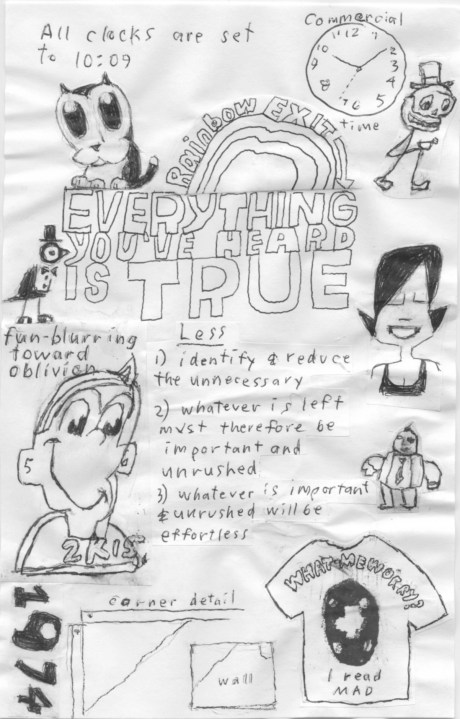 All clocks are set
to 10:09
Commercial
12
11
10
9
8
7
6
5
4
3
2
time
Rainbow EXIT
EVERYTHING
YOU'VE HEARD
IS TRUE
fun-blurring
toward
oblivion
Less
1) identify & reduce
the unnecessary
2) whatever is left
must therefore be
important and
unrushed
3) whatever is important
& unrushed will be
effortless
5
6
2KIS
1974
corner detail
wall
WHAT-ME WORRY?
I read
MAD